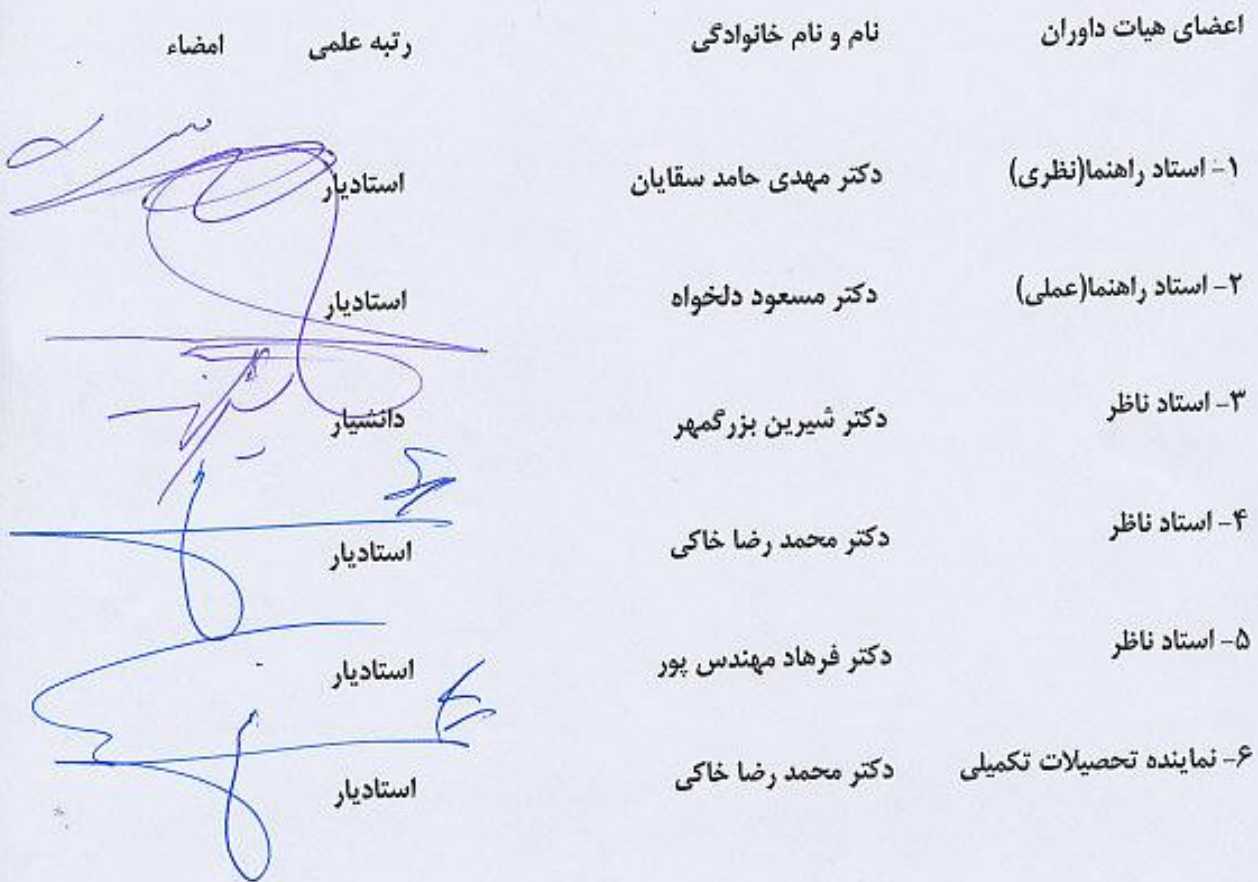 اعضای هیات داوران نام و نام خانوادگی رتبه علمی امضاء
۱- استاد راهنما(نظری) دکتر مهدی حامد سقایان استادیار
۲- استاد راهنما(عملی) دکتر مسعود دلخواه استادیار
۳- استاد ناظر دکتر شیرین بزرگمهر دانشیار
۴- استاد ناظر دکتر محمد رضا خاکی استادیار
۵- استاد ناظر دکتر فرهاد مهندس پور استادیار
۶- نماینده تحصیلات تکمیلی دکتر محمد رضا خاکی استادیار